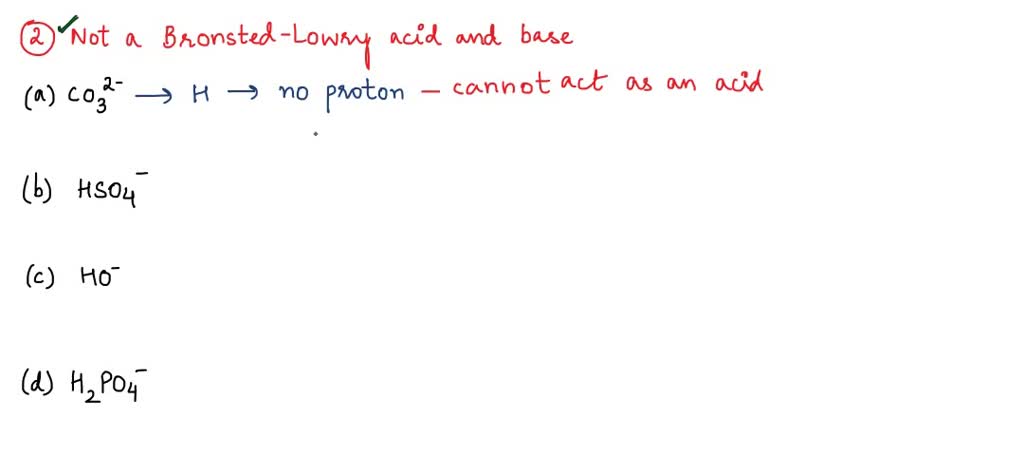 ② ✓Not a Bronsted-Lowry acid and base
(a) CO₃²⁻ → H → no proton – cannot act as an acid
(b) HSO₄⁻
(c) HO⁻
(d) H₂PO₄⁻